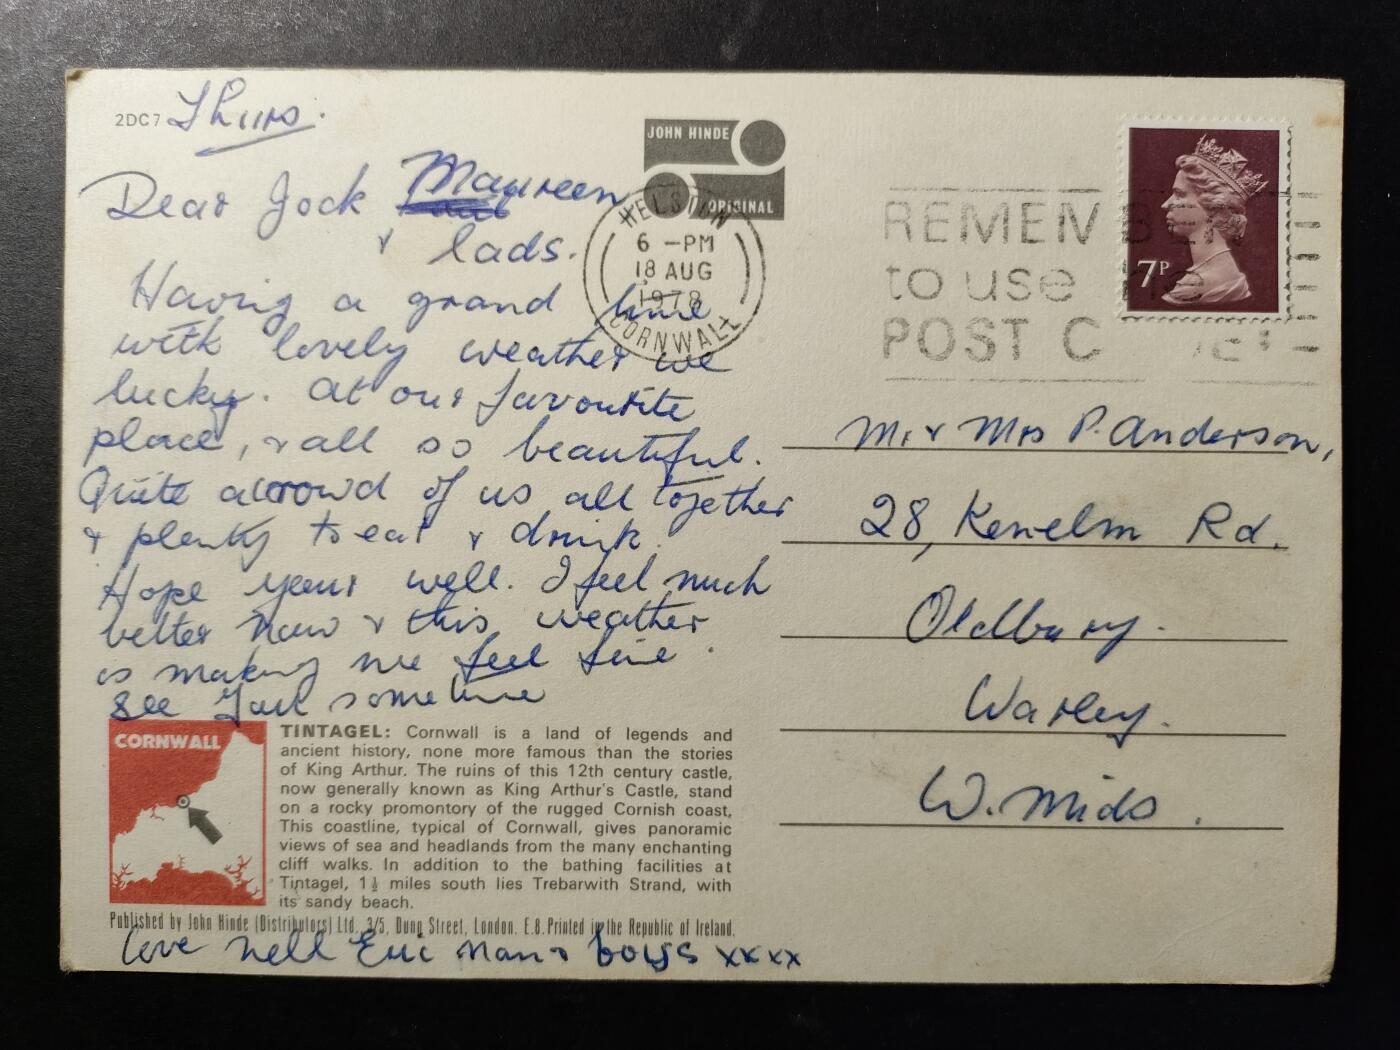 2DC7 Thurs.
JOHN HINDE
ORIGINAL
Dear Jock Maureen
& lads.
Having a grand time
with lovely weather we
lucky. At our favourite
place, & all so beautiful.
Quite a crowd of us all together
& plenty to eat & drink.
Hope your well. I feel much
better now & this weather
is making me feel fine.
See Jack sometime
HELSTON
6 -PM
18 AUG
1978
CORNWALL
REMEMBER
to use the
POST C
7P
Mr & Mrs P. Anderson,
28, Kenelm Rd.
Oldbury.
Warley.
W. Mids.
CORNWALL
TINTAGEL: Cornwall is a land of legends and
ancient history, none more famous than the stories
of King Arthur. The ruins of this 12th century castle,
now generally known as King Arthur's Castle, stand
on a rocky promontory of the rugged Cornish coast.
This coastline, typical of Cornwall, gives panoramic
views of sea and headlands from the many enchanting
cliff walks. In addition to the bathing facilities at
Tintagel, 1½ miles south lies Trebarwith Strand, with
its sandy beach.
Published by John Hinde (Distributors) Ltd., 3/5, Dunn Street, London. E.8. Printed in the Republic of Ireland.
love Nell Eric Nan & boys xxxx